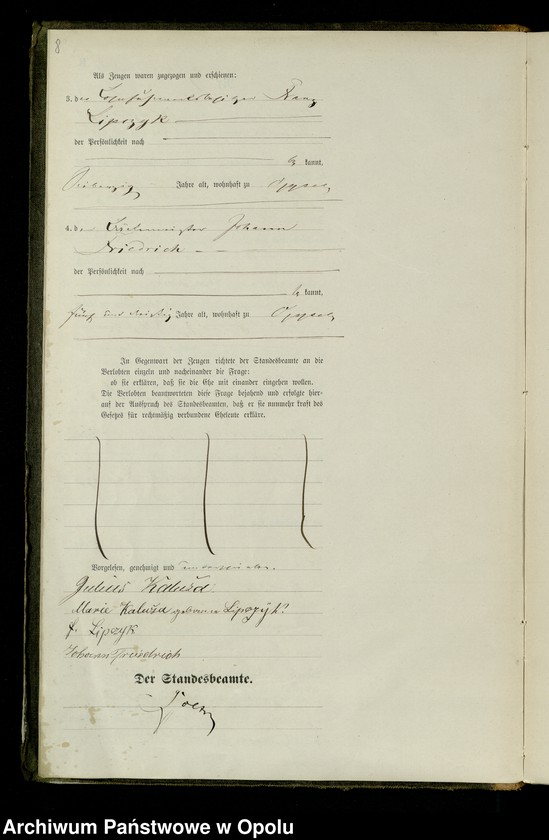 8
Als Zeugen waren zugezogen und erschienen:
3. der Franz
Lipczyk
der Persönlichkeit nach
kannt,
Jahre alt, wohnhaft zu
4. der Johann
Friedrich
der Persönlichkeit nach
kannt,
fünf und dreißig Jahre alt, wohnhaft zu
In Gegenwart der Zeugen richtete der Standesbeamte an die
Verlobten einzeln und nacheinander die Frage:
ob sie erklären, daß sie die Ehe mit einander eingehen wollen.
Die Verlobten beantworteten diese Frage bejahend und erfolgte hier-
auf der Ausspruch des Standesbeamten, daß er sie nunmehr kraft des
Gesetzes für rechtmäßig verbundene Eheleute erkläre.
Vorgelesen, genehmigt und unterschrieben.
Julius Kaluża
Marie Kaluża geborene Lipczyk
F. Lipczyk
Johann Friedrich
Der Standesbeamte.
Archiwum Państwowe w Opolu